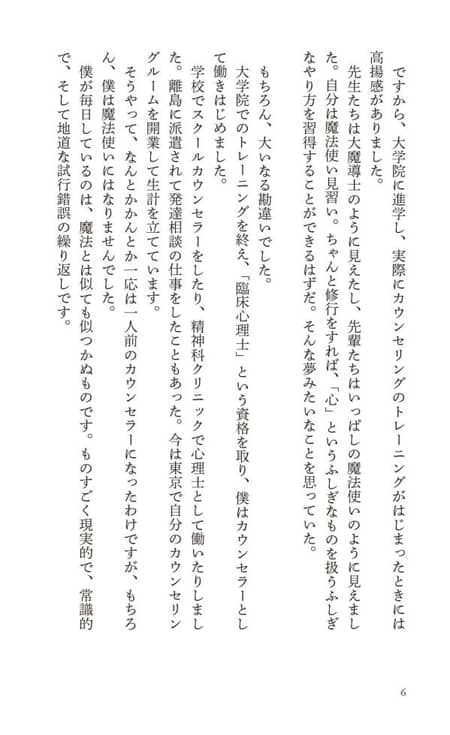 ですから、大学院に進学し、実際にカウンセリングのトレーニングがはじまったときには
高揚感がありました。
先生たちは大魔導士のように見えたし、先輩たちはいっぱしの魔法使いのように見えまし
た。自分は魔法使い見習い。ちゃんと修行をすれば、「心」というふしぎなものを扱うふしぎ
なやり方を習得することができるはずだ。そんな夢みたいなことを思っていた。
もちろん、大いなる勘違いでした。
大学院でのトレーニングを終え、「臨床心理士」という資格を取り、僕はカウンセラーとし
て働きはじめました。
学校でスクールカウンセラーをしたり、精神科クリニックで心理士として働いたりしまし
た。離島に派遣されて発達相談の仕事をしたこともあった。今は東京で自分のカウンセリン
グルームを開業して生計を立てています。
そうやって、なんとかかんとか一応は一人前のカウンセラーになったわけですが、もちろ
ん、僕は魔法使いにはなりませんでした。
僕が毎日しているのは、魔法とは似ても似つかぬものです。ものすごく現実的で、常識的
で、そして地道な試行錯誤の繰り返しです。
6